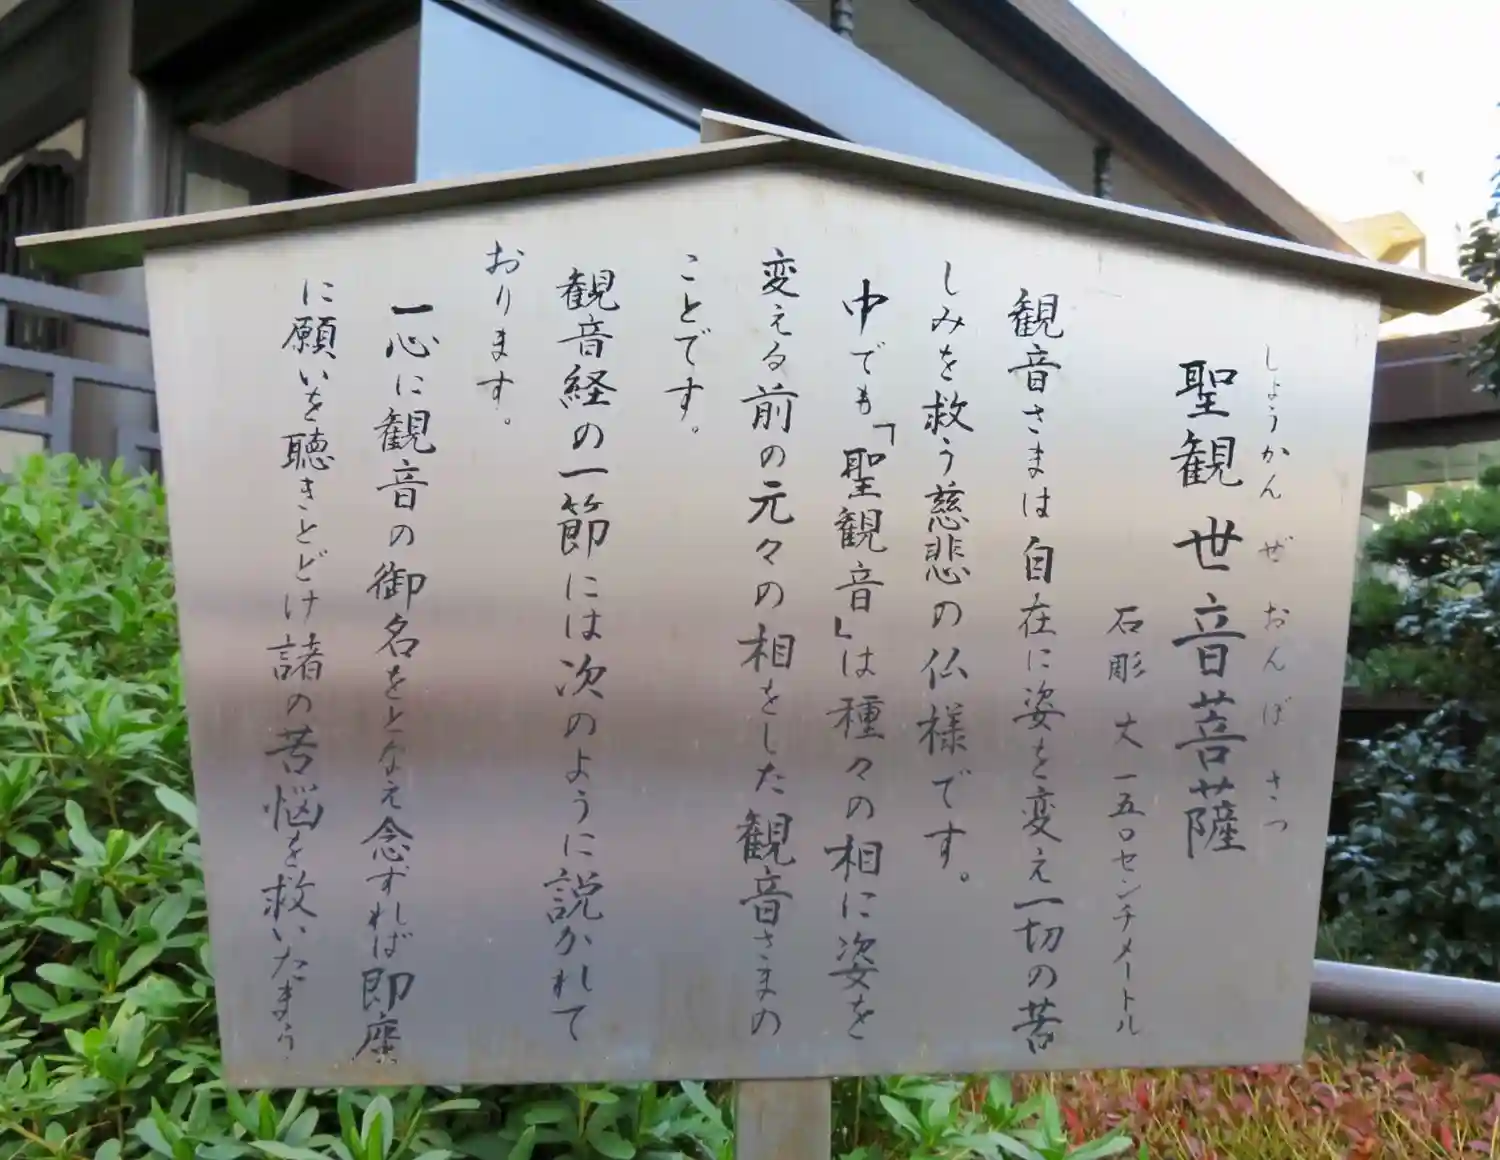 しょうかんぜおんぼさつ
聖観世音菩薩
石彫 丈一五〇センチメートル
観音さまは自在に姿を変え一切の苦
しみを救う慈悲の仏様です。
中でも「聖観音」は種々の相に姿を
変える前の元々の相をした観音さまの
ことです。
観音経の一節には次のように説かれて
おります。
一心に観音の御名をとなえ念ずれば即座
に願いを聴きとどけ諸の苦悩を救いたまう